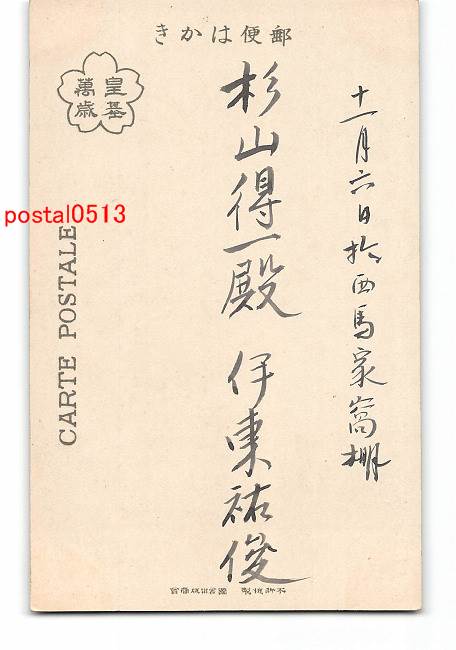 郵便はかき
皇基
萬歳
十一月六日於西馬家窩棚
杉山得一殿 伊東祐俊
postal0513
CARTE POSTALE